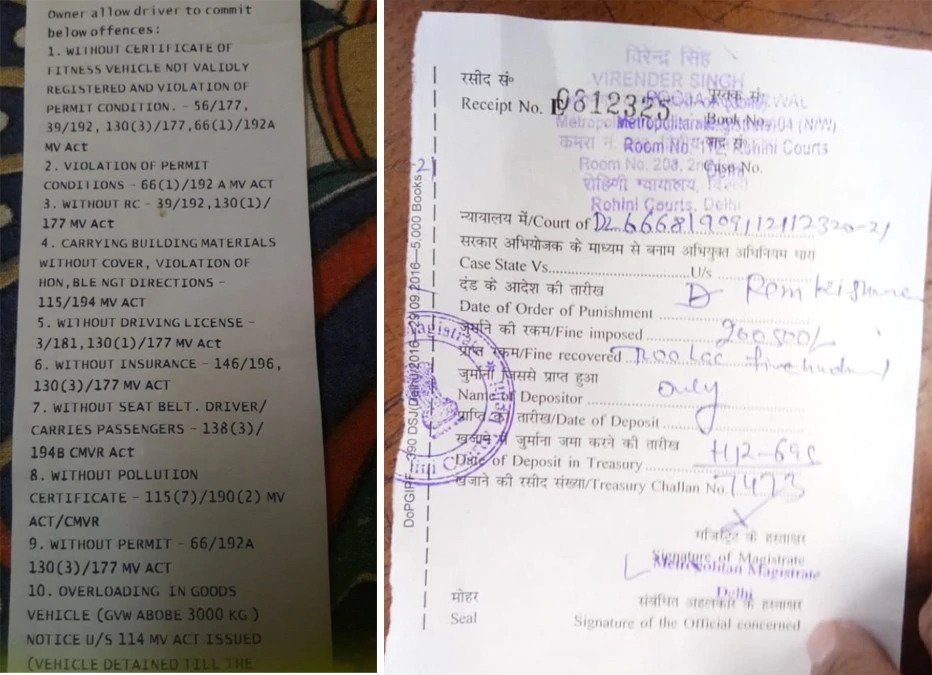 Owner allow driver to commit
below offences:
1. WITHOUT CERTIFICATE OF
FITNESS VEHICLE NOT VALIDLY
REGISTERED AND VIOLATION OF
PERMIT CONDITION. - 56/177,
39/192, 130(3)/177,66(1)/192A
MV Act
2. VIOLATION OF PERMIT
CONDITIONS - 66(1)/192 A MV ACT
3. WITHOUT RC - 39/192,130(1)/
177 MV Act
4. CARRYING BUILDING MATERIALS
WITHOUT COVER, VIOLATION OF
HON,BLE NGT DIRECTIONS -
115/194 MV ACT
5. WITHOUT DRIVING LICENSE -
3/181,130(1)/177 MV Act
6. WITHOUT INSURANCE - 146/196,
130(3)/177 MV ACT
7. WITHOUT SEAT BELT. DRIVER/
CARRIES PASSENGERS - 138(3)/
194B CMVR Act
8. WITHOUT POLLUTION
CERTIFICATE - 115(7)/190(2) MV
ACT/CMVR
9. WITHOUT PERMIT - 66/192A
130(3)/177 MV ACT
10. OVERLOADING IN GOODS
VEHICLE (GVW ABOBE 3000 KG )
NOTICE U/S 114 MV ACT ISSUED
(VEHICLE DETAINED TILL THE
विरेन्द्र सिंह
VIRENDER SINGH
रसीद सं०
पुस्तक सं०
Receipt No. 0612325
Book No.
Metropolitan 04 (N/W)
कमरा नं. Room No. Rohini Courts
Room No. 208, Case No.
रोहिणी न्यायालय,
Rohini Courts, Delhi
न्यायालय में/Court of
सरकार अभियोजक के माध्यम से बनाम अभियुक्त अधिनियम धारा
Case State Vs. U/s
दंड के आदेश की तारीख
Date of Order of Punishment
जुर्माने की रकम/Fine imposed 200500/-
प्राप्त रकम/Fine recovered Two Lac five hundred
जुर्माना जिससे प्राप्त हुआ only
Name of Depositor
प्राप्ति की तारीख/Date of Deposit
खजाने में जुर्माना जमा करने की तारीख
Date of Deposit in Treasury
खजाने की रसीद संख्या/Treasury Challan No.
मजिस्ट्रेट के हस्ताक्षर
Signature of Magistrate
Metropolitan Magistrate
Delhi
मोहर
संबंधित अहलकार के हस्ताक्षर
Seal
Signature of the Official concerned